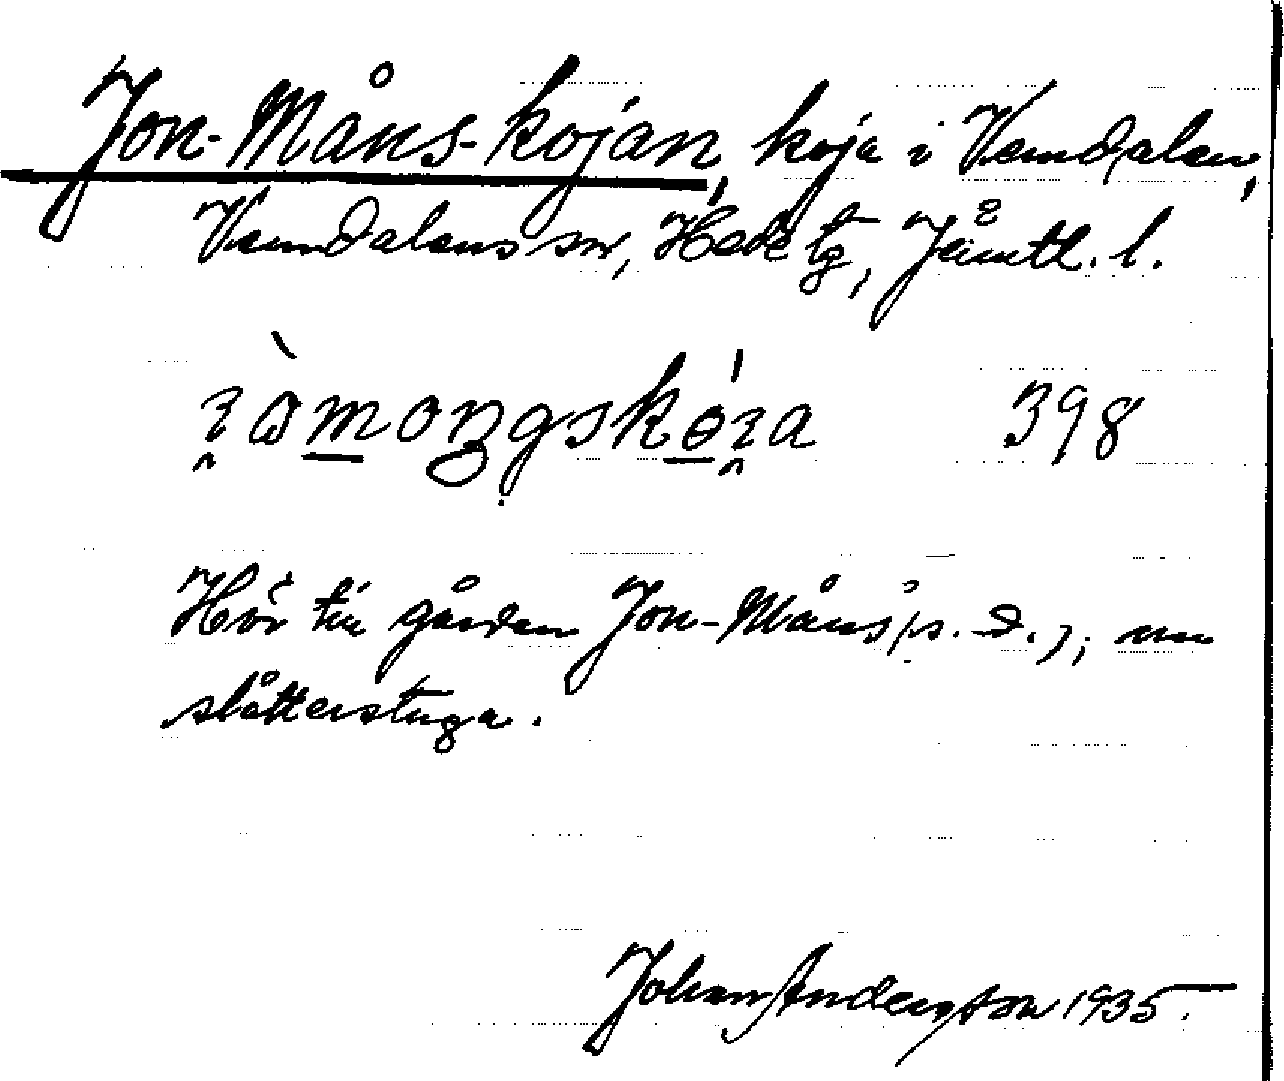 Jon-Måns-kojan, koja i Vemdalen,
Vemdalens sn, Hede tg, Jämtl. l.
398
Hör till gården Jon-Måns (s. d.); nu
slåtterstuga.
Johan Anderson 1935.